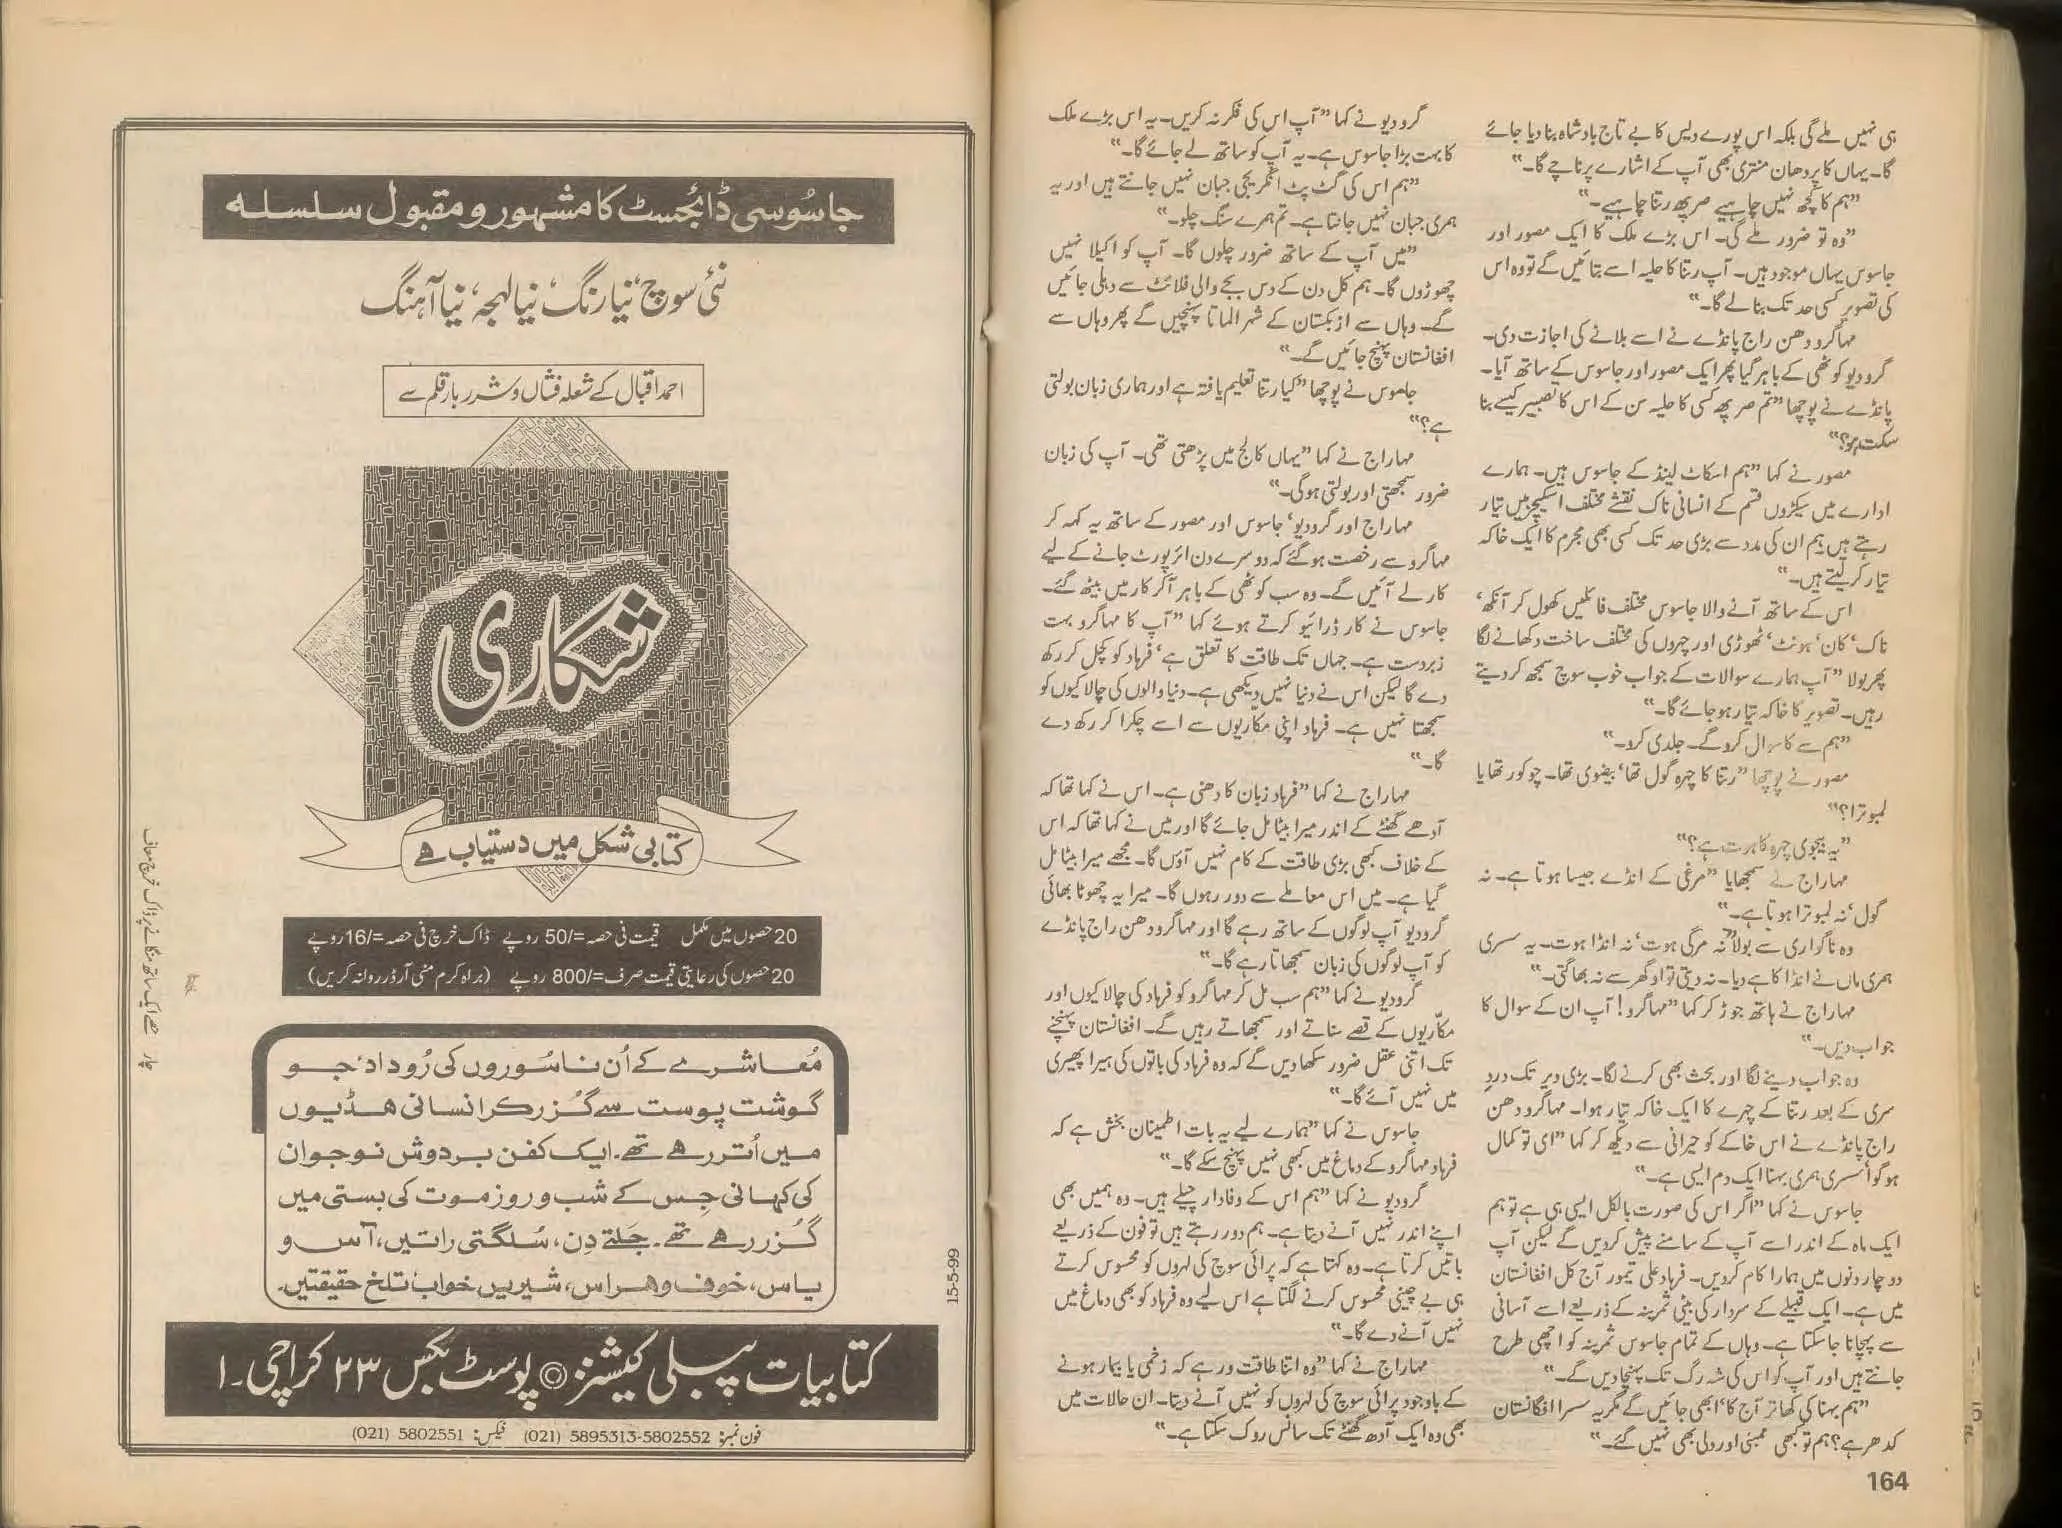 ہی نہیں ملے گی بلکہ اس پورے دیس کا بے تاج بادشاہ بنا دیا جائے
گا۔ یہاں کا پردھان منتری بھی آپ کے اشارے پر ناچے گا۔"
"ہم کا کچھ نہیں چاہیے صرپھ رتنا چاہیے۔"
"وہ تو ضرور ملے گی۔ اس بڑے ملک کا ایک مصور اور
جاسوس یہاں موجود ہیں۔ آپ رتنا کا حلیہ اسے بتائیں گے تو وہ اس
کی تصویر کسی حد تک بنا لے گا۔"
مہاگرو دھن راج پانڈے نے اسے بلانے کی اجازت دی۔
گرودیو کوٹھی کے باہر گیا پھر ایک مصور اور جاسوس کے ساتھ آیا۔
پانڈے نے پوچھا "تم صرپھ کسی کا حلیہ سن کے اس کا تصبیر کیسے بنا
سکت ہو؟"
مصور نے کہا "ہم اسکاٹ لینڈ کے جاسوس ہیں۔ ہمارے
ادارے میں سیکڑوں قسم کے انسانی ناک نقشے مختلف اسکیچز میں تیار
رہتے ہیں ہم ان کی مدد سے بڑی حد تک کسی بھی مجرم کا ایک خاکہ
تیار کر لیتے ہیں۔"
اس کے ساتھ آنے والا جاسوس مختلف فائلیں کھول کر آنکھ‘
ناک‘ کان‘ ہونٹ‘ ٹھوڑی اور چہروں کی مختلف ساخت دکھانے لگا
پھر بولا "آپ ہمارے سوالات کے جواب خوب سوچ سمجھ کر دیتے
رہیں۔ تصویر کا خاکہ تیار ہو جائے گا۔"
"ہم سے کا سوال کرو گے۔ جلدی کرو۔"
مصور نے پوچھا "رتنا کا چہرہ گول تھا‘ بیضوی تھا۔ چوکور تھا یا
لمبوترا؟"
"یہ بیجوی چہرہ کا ہرت ہے؟"
مہاراج نے سمجھایا "مرغی کے انڈے جیسا ہوتا ہے۔ نہ
گول‘ نہ لمبوترا ہوتا ہے۔"
وہ ناگواری سے بولا "نہ مرگی ہوت‘ نہ انڈا ہوت۔ یہ سسری
ہمری ماں نے انڈا کاہے دیا۔ نہ دیتی تو او گھر سے نہ بھاگتی۔"
مہاراج نے ہاتھ جوڑ کر کہا "مہاگرو! آپ ان کے سوال کا
جواب دیں۔"
وہ جواب دینے لگا اور بحث بھی کرنے لگا۔ بڑی دیر تک دردِ
سری کے بعد رتنا کے چہرے کا ایک خاکہ تیار ہوا۔ مہاگرو دھن
راج پانڈے نے اس خاکے کو حیرانی سے دیکھ کر کہا "ای تو کمال
ہو گوا‘ سسری ہمری بہنا ایک دم ایسی ہے۔"
جاسوس نے کہا "اگر اس کی صورت بالکل ایسی ہی ہے تو ہم
ایک ماہ کے اندر اسے آپ کے سامنے پیش کر دیں گے لیکن آپ
دو چار دنوں میں ہمارا کام کر دیں۔ فرہاد علی تیمور آج کل افغانستان
میں ہے۔ ایک قبیلے کے سردار کی بیٹی ثمرینہ کے ذریعے اسے آسانی
سے پہچانا جا سکتا ہے۔ وہاں کے تمام جاسوس ثمرینہ کو اچھی طرح
جانتے ہیں اور آپ کو اس کی شہ رگ تک پہنچا دیں گے۔"
"ہم بہنا کی کھاتر آج کا‘ ابھی جائیں گے مگر یہ سسرا افگانستان
کدھر ہے؟ ہم تو کبھی ممبئی اور دلی بھی نہیں گئے۔"
164
گرودیو نے کہا "آپ اس کی فکر نہ کریں۔ یہ اس بڑے ملک
کا بہت بڑا جاسوس ہے۔ یہ آپ کو ساتھ لے جائے گا۔"
"ہم اس کی گٹ پٹ انگریجی جبان نہیں جانتے ہیں اور یہ
ہمری جبان نہیں جانتا ہے۔ تم ہمرے سنگ چلو۔"
"میں آپ کے ساتھ ضرور چلوں گا۔ آپ کو اکیلا نہیں
چھوڑوں گا۔ ہم کل دن کے دس بجے والی فلائٹ سے دہلی جائیں
گے۔ وہاں سے ازبکستان کے شہر الماتا پہنچیں گے پھر وہاں سے
افغانستان پہنچ جائیں گے۔"
جاسوس نے پوچھا "کیا رتنا تعلیم یافتہ ہے اور ہماری زبان بولتی
ہے؟"
مہاراج نے کہا "یہاں کالج میں پڑھتی تھی۔ آپ کی زبان
ضرور سمجھتی اور بولتی ہو گی۔"
مہاراج اور گرودیو‘ جاسوس اور مصور کے ساتھ یہ کہہ کر
مہاگرو سے رخصت ہو گئے کہ دوسرے دن ائرپورٹ جانے کے لیے
کار لے آئیں گے۔ وہ سب کوٹھی کے باہر آ کر کار میں بیٹھ گئے۔
جاسوس نے کار ڈرائیو کرتے ہوئے کہا "آپ کا مہاگرو بہت
زبردست ہے۔ جہاں تک طاقت کا تعلق ہے‘ فرہاد کو کچل کر رکھ
دے گا لیکن اس نے دنیا نہیں دیکھی ہے۔ دنیا والوں کی چالاکیوں کو
سمجھتا نہیں ہے۔ فرہاد اپنی مکاریوں سے اسے چکرا کر رکھ دے
گا۔"
مہاراج نے کہا "فرہاد زبان کا دھنی ہے۔ اس نے کہا تھا کہ
آدھے گھنٹے کے اندر میرا بیٹا مل جائے گا اور میں نے کہا تھا کہ اس
کے خلاف کبھی بڑی طاقت کے کام نہیں آؤں گا۔ مجھے میرا بیٹا مل
گیا ہے۔ میں اس معاملے سے دور رہوں گا۔ میرا یہ چھوٹا بھائی
گرودیو آپ لوگوں کے ساتھ رہے گا اور مہاگرو دھن راج پانڈے
کو آپ لوگوں کی زبان سمجھاتا رہے گا۔"
گرودیو نے کہا "ہم سب مل کر مہاگرو کو فرہاد کی چالاکیوں اور
مکاّریوں کے قصے سناتے اور سمجھاتے رہیں گے۔ افغانستان پہنچنے
تک اتنی عقل ضرور سکھا دیں گے کہ وہ فرہاد کی باتوں کی ہیرا پھیری
میں نہیں آئے گا۔"
جاسوس نے کہا "ہمارے لیے یہ بات اطمینان بخش ہے کہ
فرہاد مہاگرو کے دماغ میں کبھی نہیں پہنچ سکے گا۔"
گرودیو نے کہا "ہم اس کے وفادار چیلے ہیں۔ وہ ہمیں بھی
اپنے اندر نہیں آنے دیتا ہے۔ ہم دور رہتے ہیں تو فون کے ذریعے
باتیں کرتا ہے۔ وہ کہتا ہے کہ پرائی سوچ کی لہروں کو محسوس کرتے
ہی بے چینی محسوس کرنے لگتا ہے اس لیے وہ فرہاد کو بھی دماغ میں
نہیں آنے دے گا۔"
مہاراج نے کہا "وہ اتنا طاقت ور ہے کہ زخمی یا بیمار ہونے
کے باوجود پرائی سوچ کی لہروں کو نہیں آنے دیتا۔ ان حالات میں
بھی وہ ایک آدھ گھنٹے تک سانس روک سکتا ہے۔"
جاسوسی ڈائجسٹ کا مشہور و مقبول سلسلہ
نئی سوچ‘ نیا رنگ‘ نیا لہجہ‘ نیا آہنگ
احمد اقبال کے شعلہ فشاں و شرر بار قلم سے
شکاری
کتابی شکل میں دستیاب ہے
20 حصوں میں مکمل قیمت فی حصہ =/50 روپے ڈاک خرچ فی حصہ =/16 روپے
20 حصوں کی رعایتی قیمت صرف =/800 روپے (براہ کرم منی آرڈر روانہ کریں)
چار حصے ایک ساتھ منگانے پر ڈاک خرچ معاف
مُعاشرے کے اُن ناسُوروں کی رُوداد‘ جو
گوشت پوست سے گُزر کر انسانی ھڈیوں
میں اُتر رہے تھے۔ ایک کفن بردوش نوجوان
کی کہانی جِس کے شب و روز موت کی بستی میں
گُزر رہے تھے۔ جَلتے دِن، سُلگتی راتیں، آس و
یاس، خوف و ہراس، شیریں خواب‘ تلخ حقیقتیں۔
15-5-99
کتابیات پبلی کیشنز ◎ پوسٹ بکس ۲۳ کراچی۔۱
فون نمبرز: 5802552-5895313 (021) فیکس: 5802551 (021)